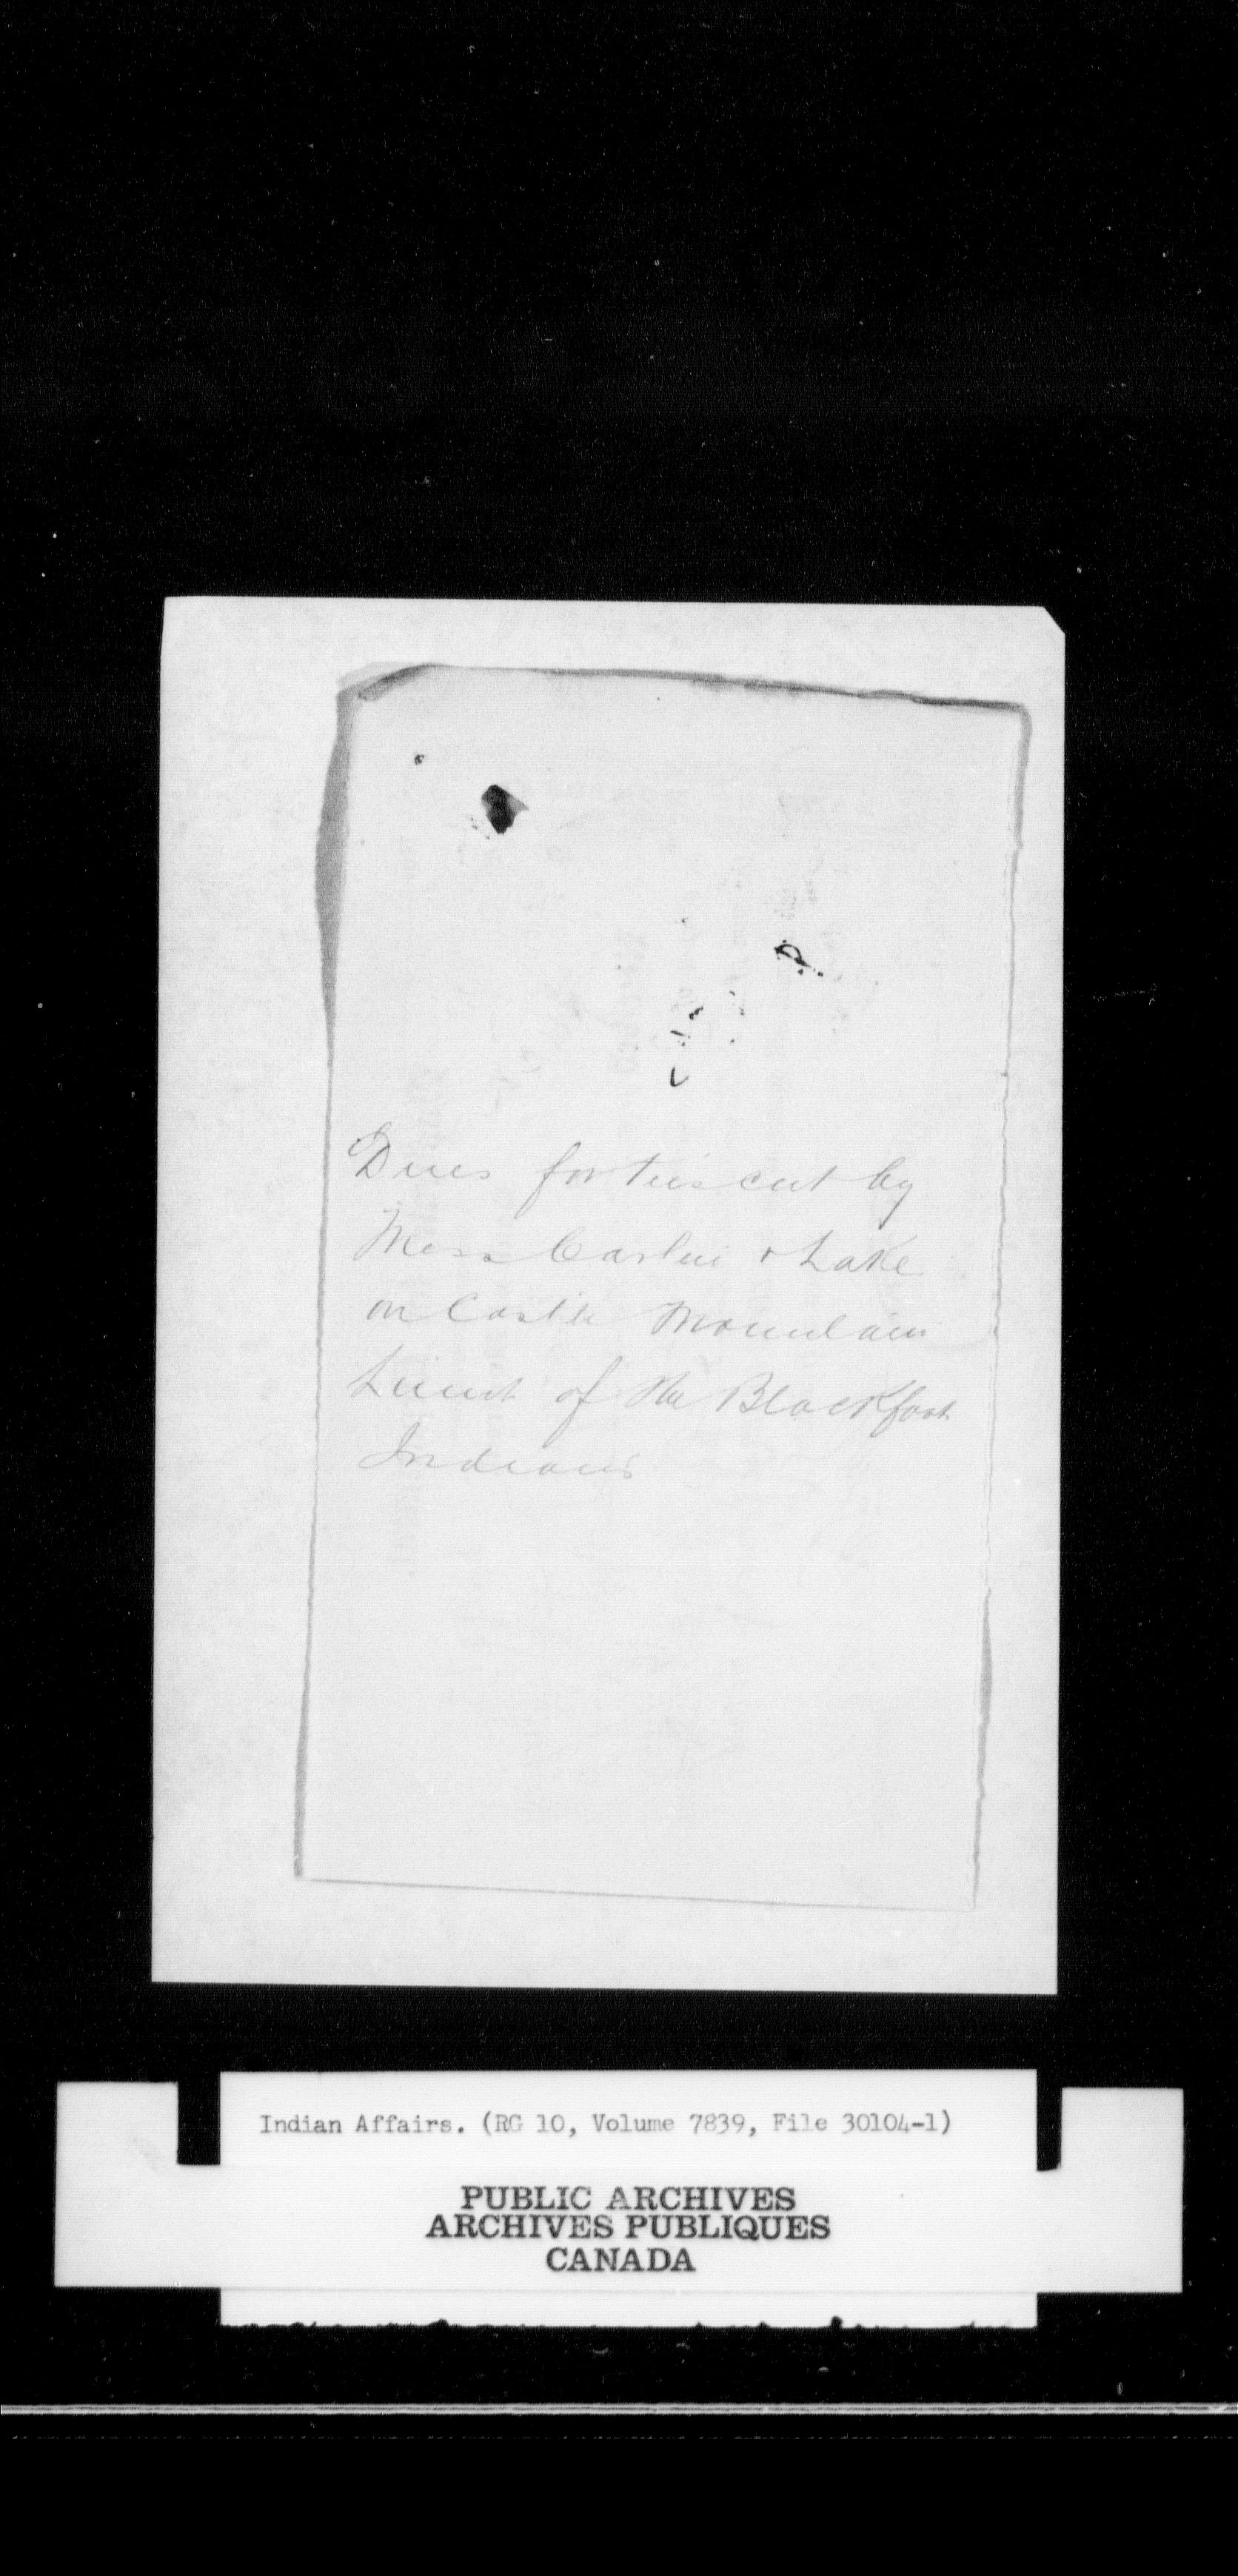 Dues for ties cut by
Mess Carlin & Lake
on Castle Mountain
Limit of the Blackfoot
Indians
Indian Affairs. (RG 10, Volume 7839, File 30104-1)
PUBLIC ARCHIVES
ARCHIVES PUBLIQUES
CANADA